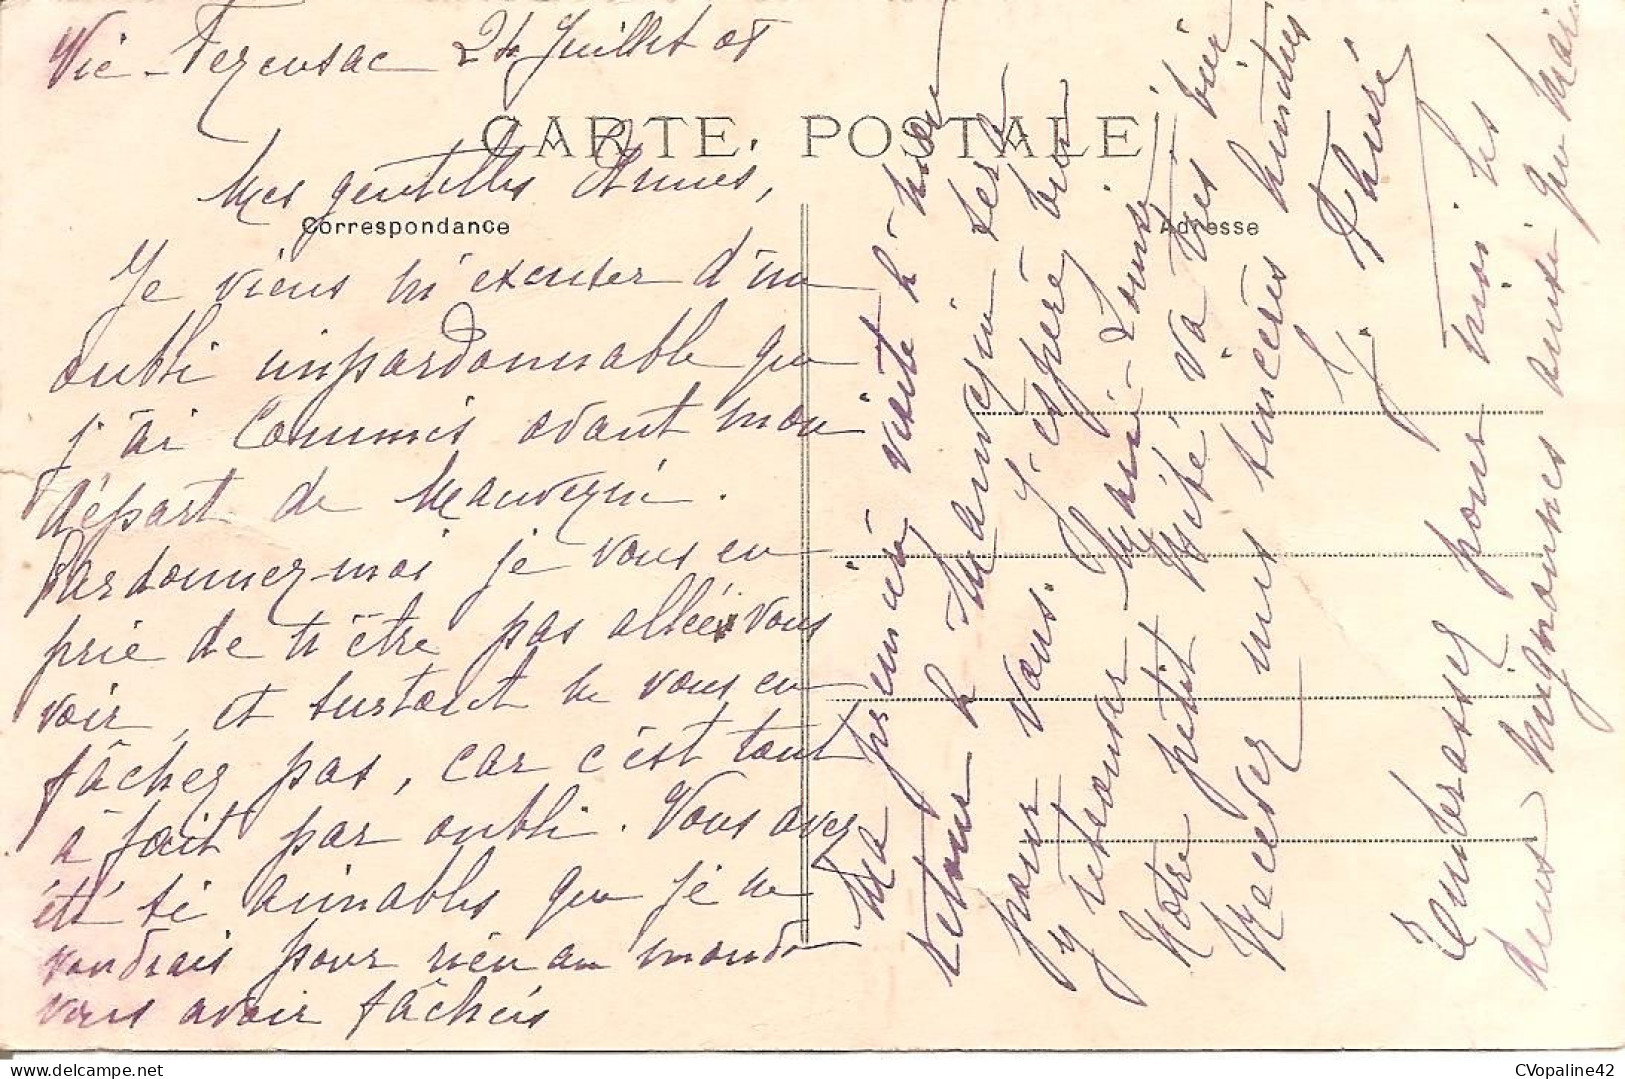 Vic-Fezensac 24 Juillet 08
CARTE POSTALE
Correspondance
Adresse
Mes gentilles Amies,
Je viens m'excuser d'un
oubli impardonnable que
j'ai commis avant mon
départ de Mauvezin.
Pardonnez-moi je vous en
prie de n'être pas allée vous
voir, et surtout ne vous en
fâchez pas, car c'est tout
à fait par oubli. Vous avez
été si aimables que je ne
voudrais pour rien au monde
vous avoir fâchées
Ma première visite à mon
retour à Mauvezin sera
pour vous. J'espère bien
y retrouver Marie-Louise
Notre petit Bébé va très bien
Recevez mes sincères
Y. Thuré
Embrassez pour moi les
deux mignonnes ainsi que
CVopaline42